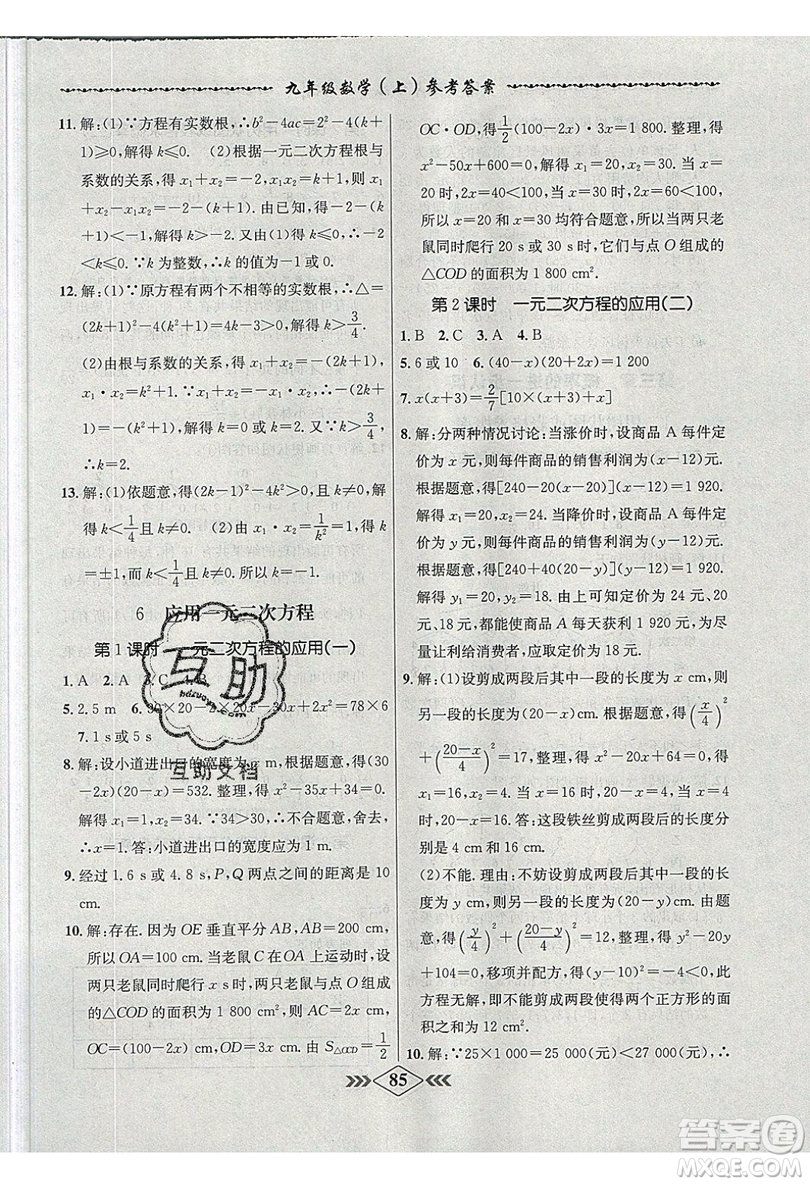 九年级数学(上)参考答案
11. 解:(1)∵方程有实数根,∴b²-4ac=2²-4(k+
1)⩾0,解得k⩽0. (2)根据一元二次方程根与
系数的关系,得x₁+x₂=-2,x₁x₂=k+1,∴x₁
+x₂-x₁x₂=-2-(k+1). 由已知,得-2-(k+
1)<-1,解得k>-2. 又由(1)知k⩽0,∴-2<k
⩽0. ∵k为整数,∴k的值为-1或0.
12. 解:(1)∵原方程有两个不相等的实数根,∴△=
(2k+1)²-4(k²+1)=4k-3>0,解得k>3/4.
(2)由根与系数的关系,得x₁+x₂=-(2k+1),
x₁·x₂=k²+1. ∵x₁+x₂=-x₁·x₂,∴-(2k+
1)=-(k²+1),解得k=0或k=2. 又∵k>3/4,
∴k=2.
13. 解:(1)依题意,得(2k-1)²-4k²>0且k≠0,解
得k<1/4且k≠0. (2)由x₁·x₂=1/k²=1,得k
=±1,而k<1/4且k≠0. 所以k=-1.
6 应用一元二次方程
第1课时 一元二次方程的应用(一)
1. A 2. A
5. 2.5 m 6. 30×20-2×20x-30x+2x²=78×6
7. 1 s或5 s
8. 解:设小道进出口的宽度为x m,根据题意,得(30
-2x)(20-x)=532. 整理,得x²-35x+34=0.
解得x₁=1,x₂=34. ∵34>30,不合题意,舍去,
∴x=1. 答:小道进出口的宽度应为1 m.
9. 经过1.6 s或4.8 s,P,Q两点之间的距离是10
cm.
10. 解:存在. 因为OE垂直平分AB,AB=200 cm,
所以OA=100 cm. 当老鼠C在OA上时,设两
只老鼠同时爬行x s时,两只老鼠与点O组成
的△COD的面积为1 800 cm²,则AC=2x cm,
OC=(100-2x) cm,OD=3x cm. 由S△OCD=1/2
OC·OD,得1/2(100-2x)·3x=1 800. 整理,得
x²-50x+600=0. 解得x₁=20,x₂=30. 当x=
20时,2x=40<100;当x=30时,2x=60<100,
所以x=20和x=30均符合题意. 所以当两只老
鼠同时爬行20 s或30 s时,它们与点O组成的
△COD的面积为1 800 cm².
第2课时 一元二次方程的应用(二)
1. B 2. C 3. A 4. B
5. 6或10 6. (40-x)(20+2x)=1 200
7. x(x+3)=2/7[10×(x+3)+x]
8. 解:分两种情况讨论:当涨价时,设商品A每件定
价为x元,则每件商品的销售利润为(x-12)元.
根据题意,得[240-20(x-20)](x-12)=1 920.
解得x₁=20,x₂=24. 当降价时,设商品A每件定
价为y元,则每件商品的销售利润为(y-12)元.
根据题意,得[240+40(20-y)](y-12)=1 920.
解得y₁=20,y₂=18. 由上可知定价为24元、
20元、18元,都能使商品A每天获利1 920元,但
为了让利给消费者,应取定价为18元.
9. 解:(1)设剪成两段后其中一段为x cm,则
另一段的长度为(20-x) cm. 根据题意,得(x/4)²
+((20-x)/4)²=17. 整理,得x²-20x+64=0. 解
得x₁=16,x₂=4. 答:这段铁丝剪成两段后的长度分
别是4 cm和16 cm.
(2)不能. 理由:不妨设剪成两段后其中一段为
y cm,则另一段的长度为(20-y) cm. 由题意,
得(y/4)²+((20-y)/4)²=12. 整理,得y²-20y+
104=0,移项并配方,得(y-10)²=-4<0,所以
此方程无解,所以不能剪成两段使得两个正方形的面
积之和为12 cm².
10. 解:∵25×1 000=25 000(元)<27 000(元),
85
互助
hdzuoye.com
互助文档
答案圈
MXQE.COM